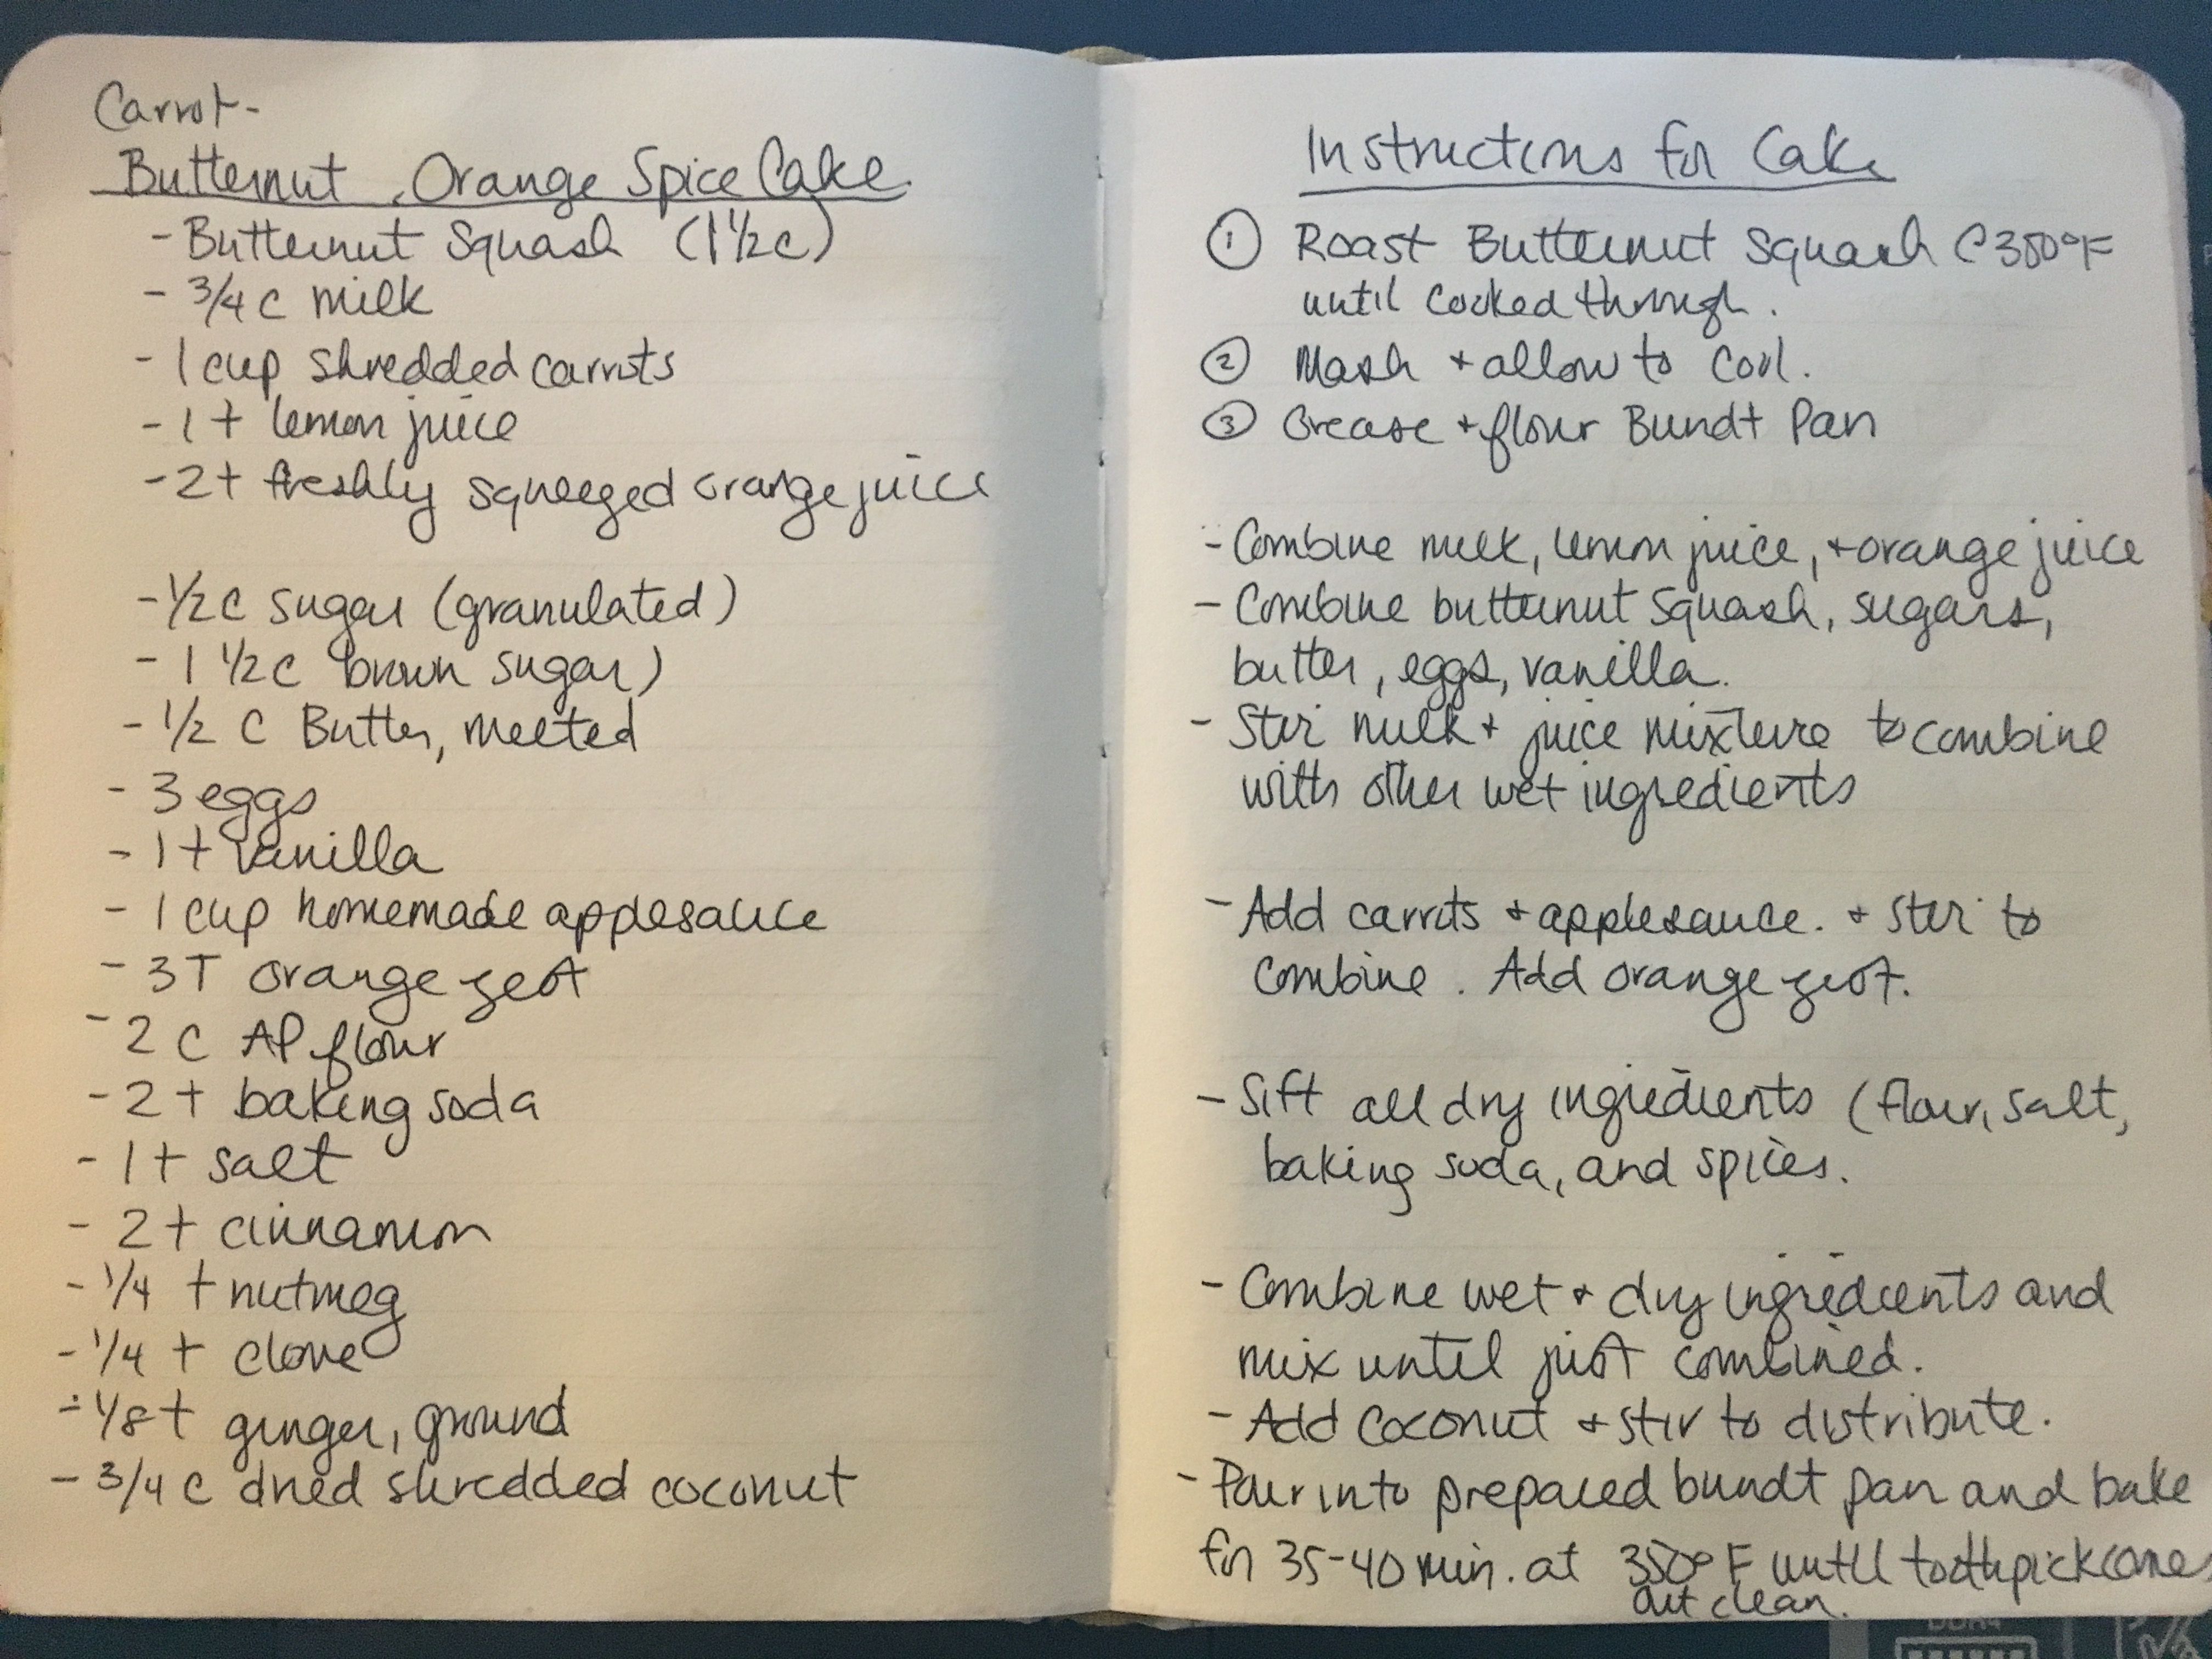 Carrot-
Butternut Orange Spice Cake
- Butternut Squash (1 1/2 c)
- 3/4 c milk
- 1 cup shredded carrots
- 1 t lemon juice
- 2 t freshly squeezed orange juice
- 1/2 c sugar (granulated)
- 1 1/2 c brown sugar)
- 1/2 c Butter, melted
- 3 eggs
- 1 t vanilla
- 1 cup homemade applesauce
- 3 T orange zest
- 2 c AP flour
- 2 t baking soda
- 1 t salt
- 2 t cinnamon
- 1/4 t nutmeg
- 1/4 t clove
- 1/8 t ginger, ground
- 3/4 c dried shredded coconut
Instructions for Cake
① Roast Butternut Squash @ 350°F
until cooked through.
② Mash + allow to cool.
③ Grease + flour Bundt Pan
- Combine milk, lemon juice, + orange juice
- Combine butternut squash, sugars,
butter, eggs, vanilla.
- Stir milk + juice mixture to combine
with other wet ingredients
- Add carrots + applesauce. + stir to
combine. Add orange zest.
- Sift all dry ingredients (flour, salt,
baking soda, and spices.
- Combine wet + dry ingredients and
mix until just combined.
- Add coconut + stir to distribute.
- Pour into prepared bundt pan and bake
for 35-40 min. at 350° F until toothpick comes
out clean.